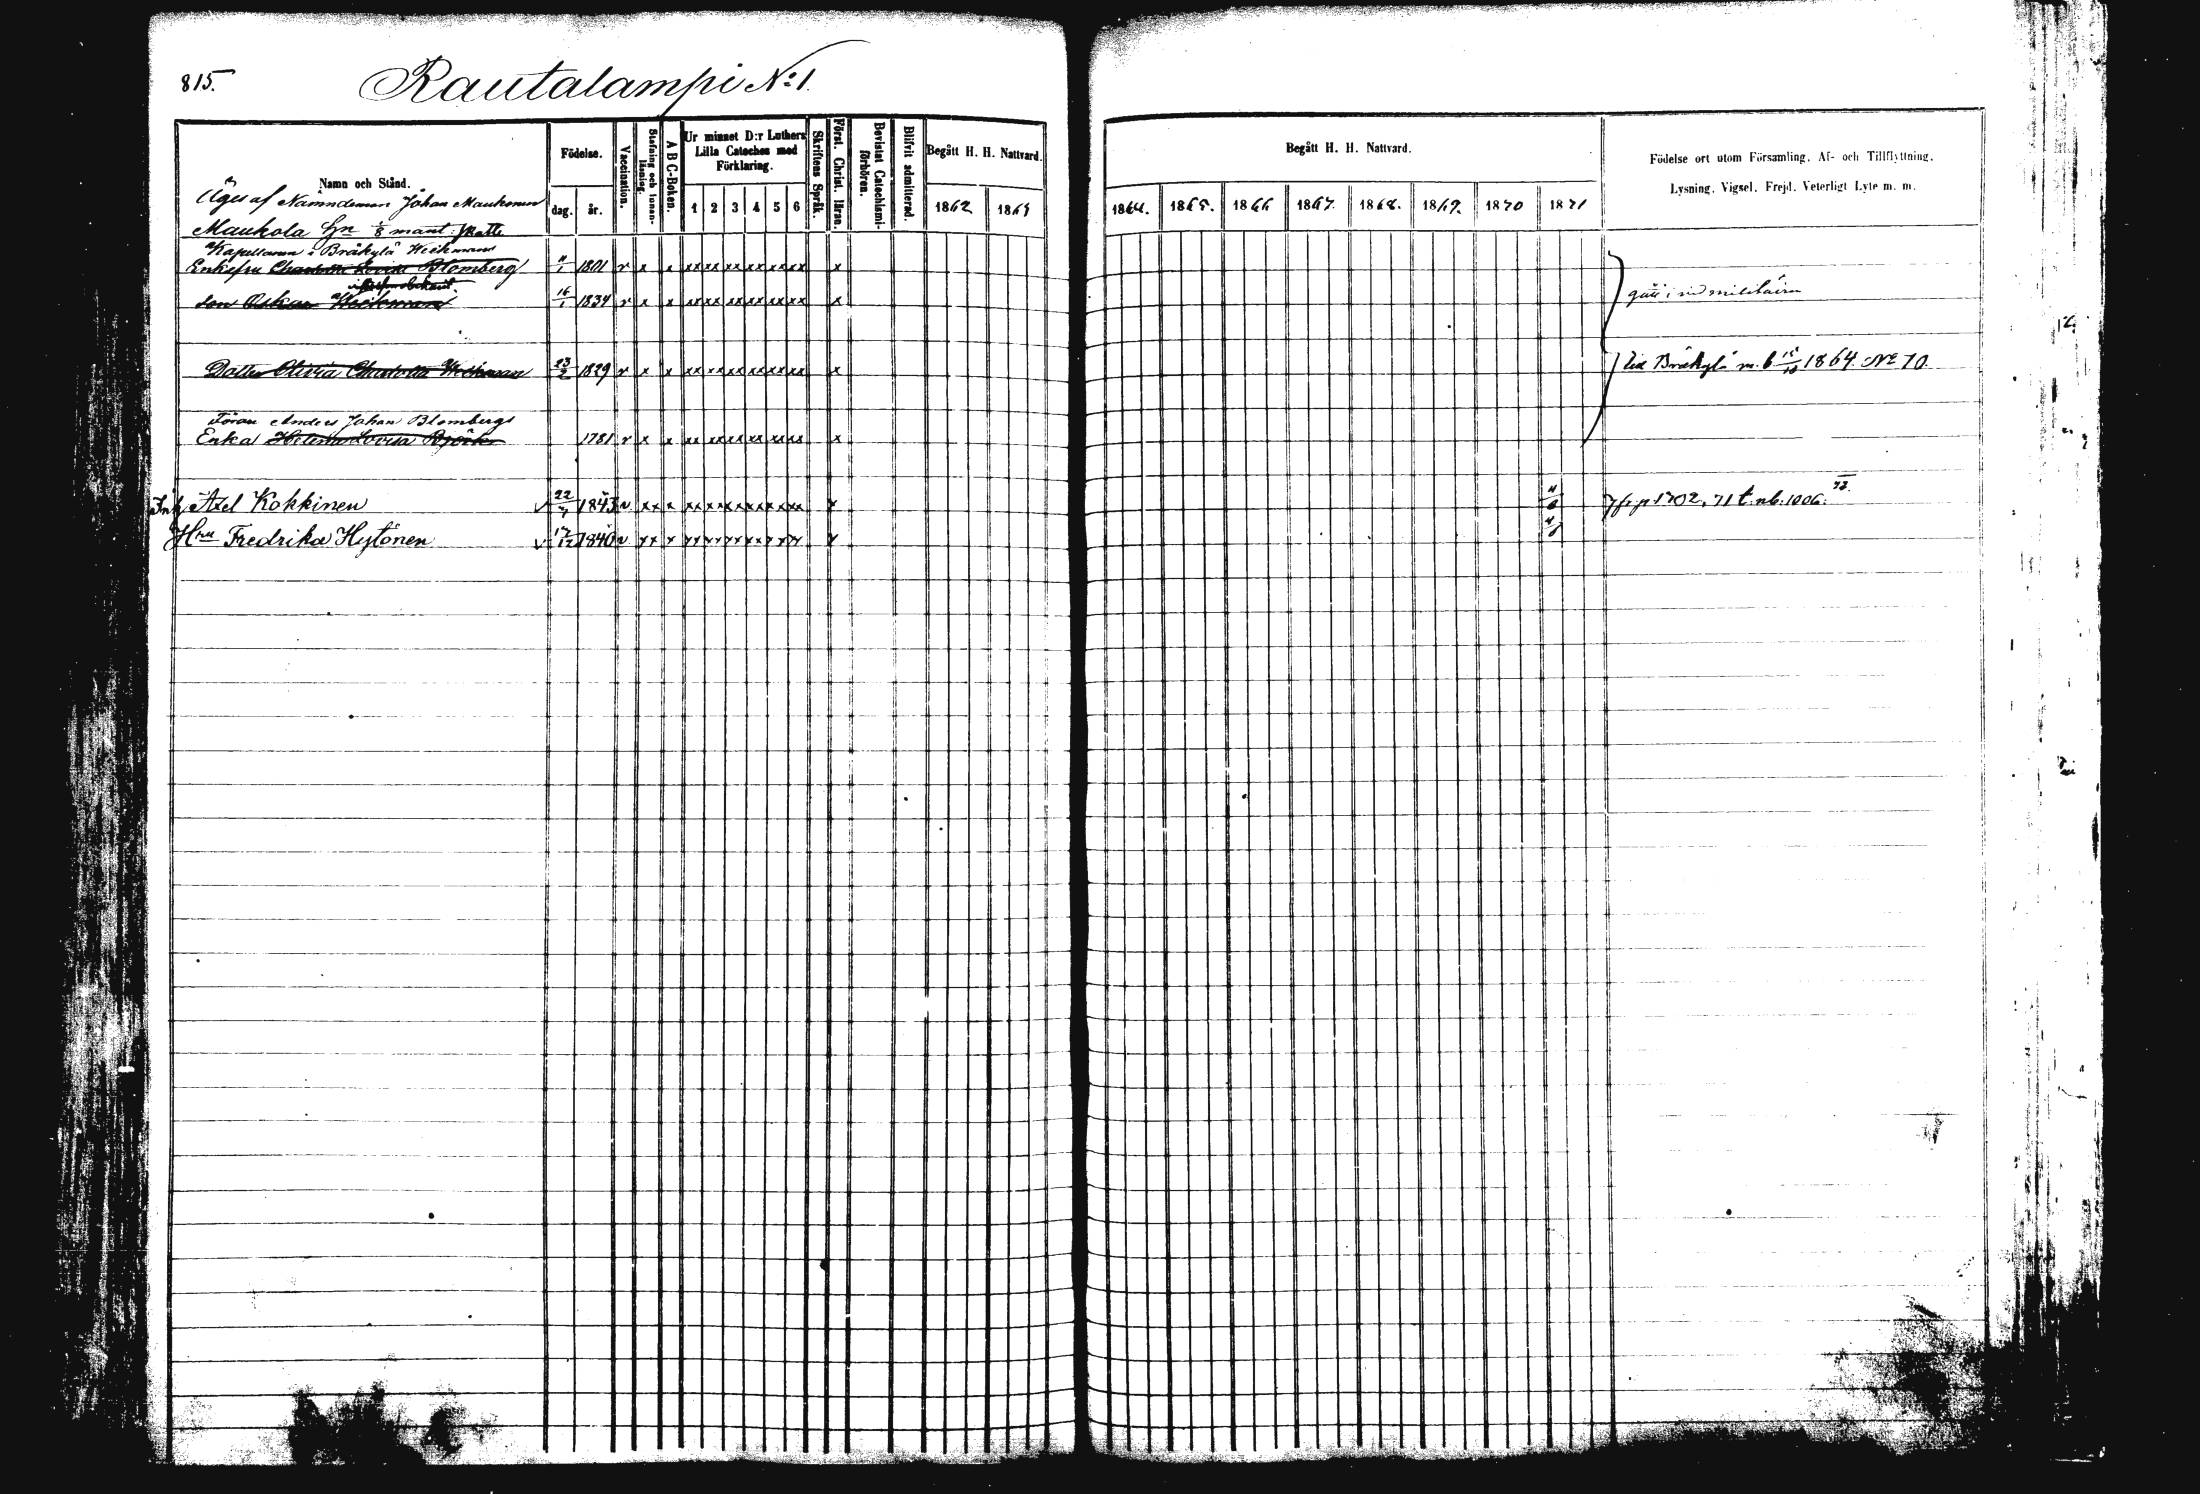 815.
Rautalampi No 1.
Namn och Stånd.
Födelse.
dag. år.
Vaccination.
Stafning och innanläsning.
A B C-Boken.
Ur minnet D:r Luthers Lilla Cateches med Förklaring.
1 2 3 4 5 6
Skriftens Språk.
Först. Christ. läran.
Bevistat Catechismiförhören.
Blifvit admitterad.
Begått H. H. Nattvard.
1862 1863
Begått H. H. Nattvard.
1864. 1865. 1866 1867. 1868. 1869. 1870 1871
Födelse ort utom Församling. Af- och Tillflyttning.
Lysning. Vigsel. Frejd. Veterligt Lyte m. m.
Äges af Nämndeman Johan Maukonen
Maukola Hn 1/8 mant: Skatte
Kapellanen i Bråkylä Weckman
Enkefru Charlotta Lovisa Blomberg 11/1 1801 v x x xx xx xx xx xx xx x
Son Oskar Weckman 16/1 1834 v x x xx xx xx xx xx xx x
Dotter Olivia Charlotta Weckman 23/2 1829 v x x xx xx xx xx xx xx x till Bråkylä m. b 12/10 1864. No 70.
Anders Johan Blombergs
Enka Helena Lovisa Björk 1781 v x x xx xx xx xx xx xx x
Inh Axel Kokkinen 22/7 1843 v xx x xx xx xx xx xx xx x 4/6 fr. p. 1702, 71 t. nb: 1006. 72.
Hru Fredrika Hytönen 17/12 1840 v xx x xx xx xx xx xx xx x 4/6